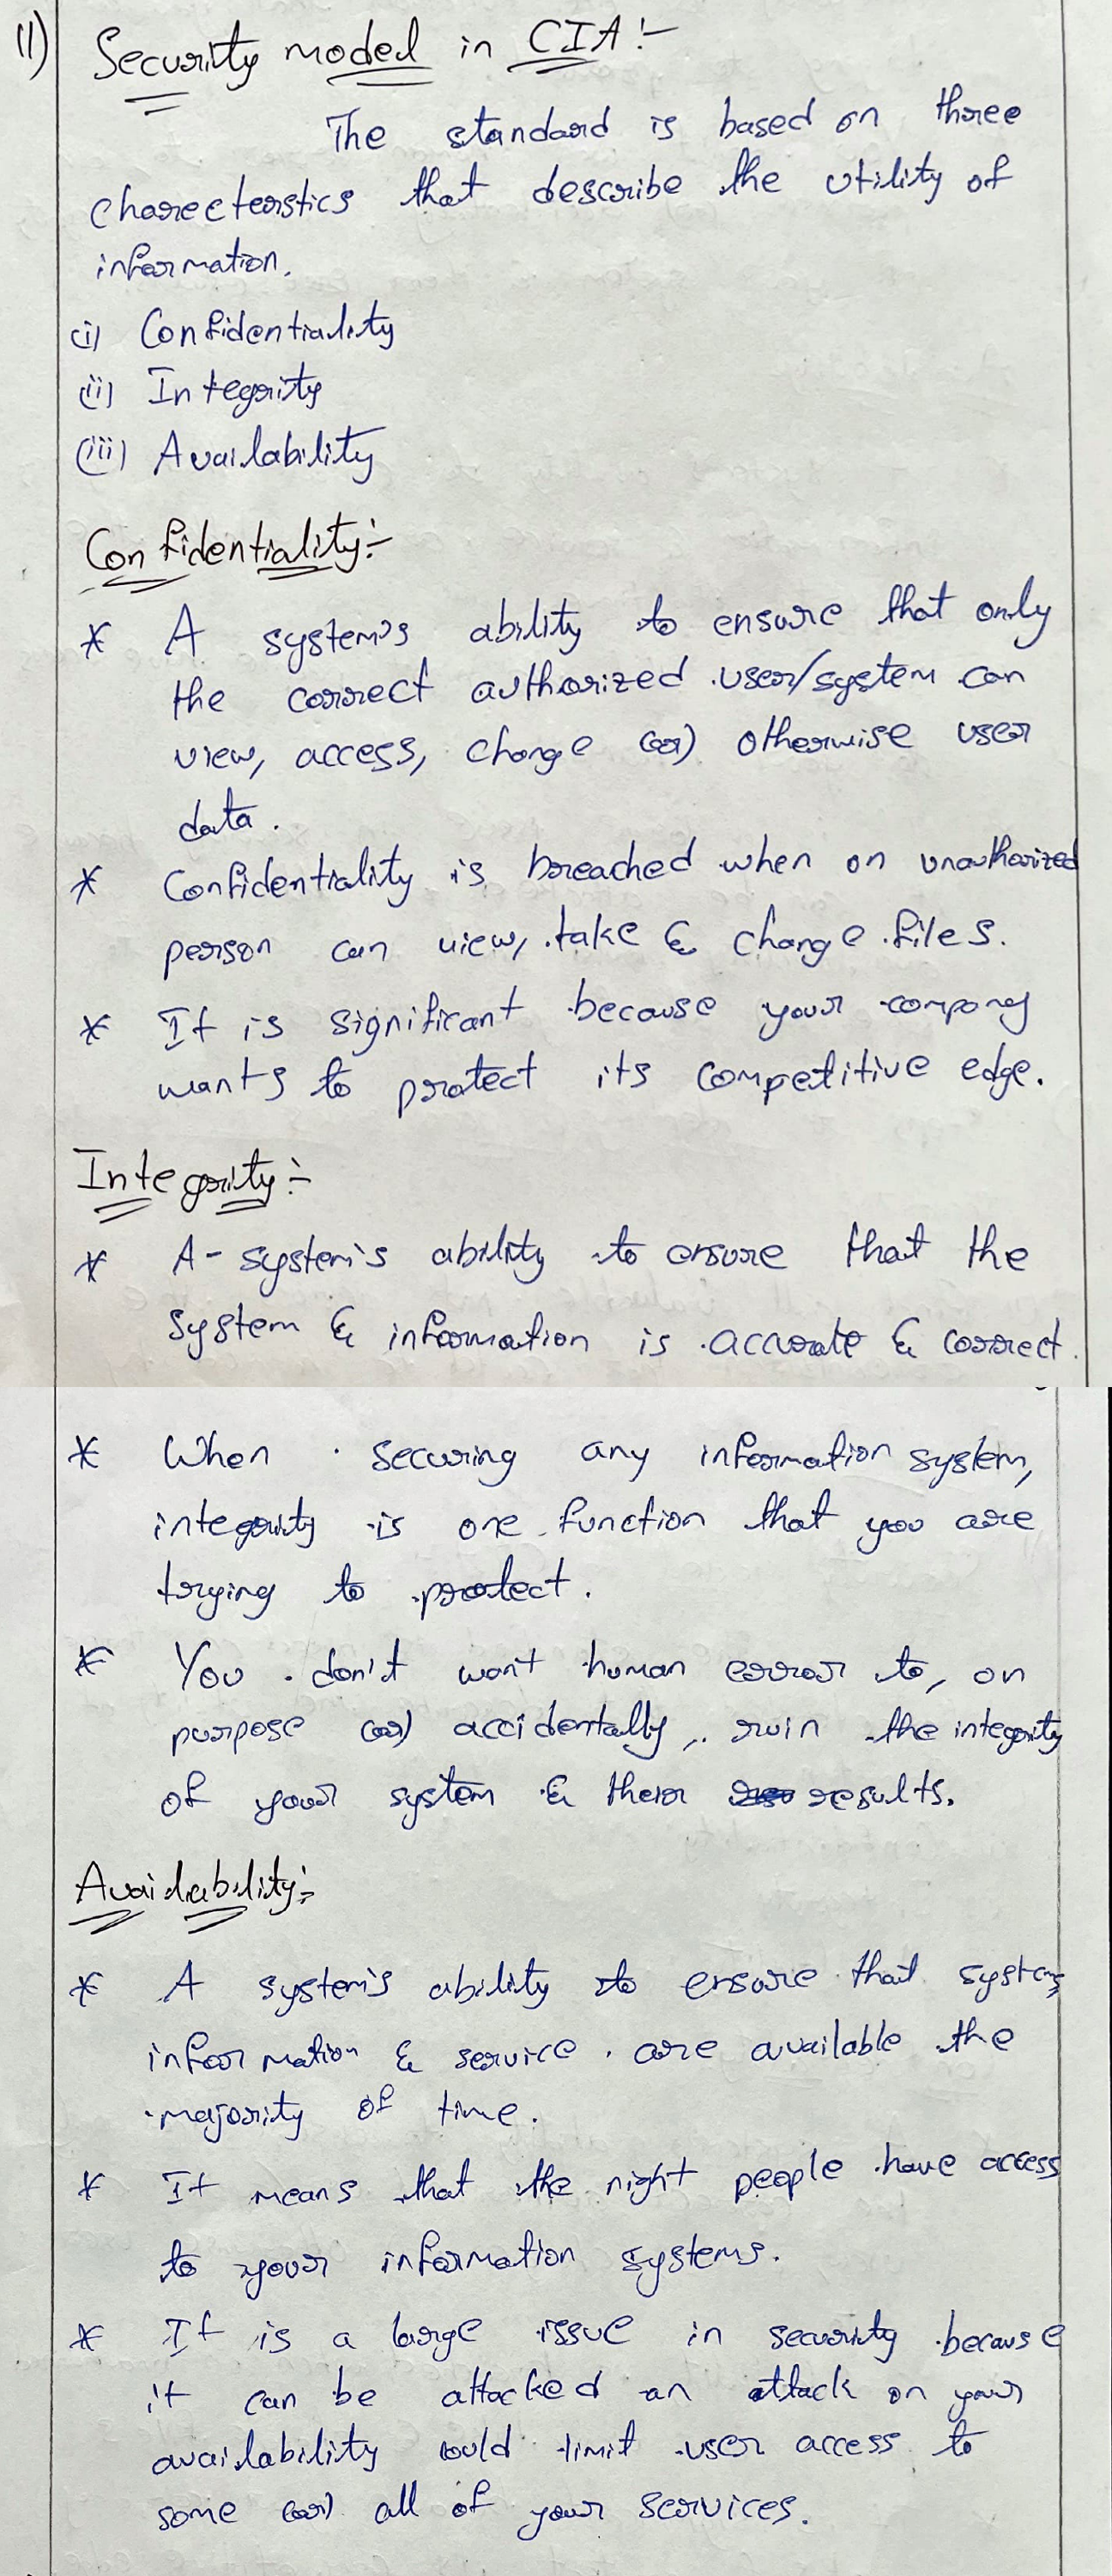 11) Security model in CIA :-
The standard is based on three
chareeterstics that describe the utility of
information.
(i) Confidentiality
(ii) Integrity
(iii) Availability
Confidentiality:-
* A system's ability to ensure that only
the correct authorized user/system can
view, access, change (or) otherwise user
data.
* Confidentiality is breached when an unauthorized
person can view, take & change files.
* It is significant because your company
wants to protect its competitive edge.
Integrity :-
* A-system's ability to ensure that the
system & information is accurate & correct.
* When securing any information system,
integrity is one function that you are
trying to protect.
* You don't want human error to, on
purpose (or) accidentally, ruin the integrity
of your system & their results.
Availability:-
* A system's ability to ensure that systems
information & service are available the
majority of time.
* It means that the right people have access
to your information systems.
* It is a large issue in security because
it can be attacked an attack on your
availability could limit user access to
some (or) all of your services.